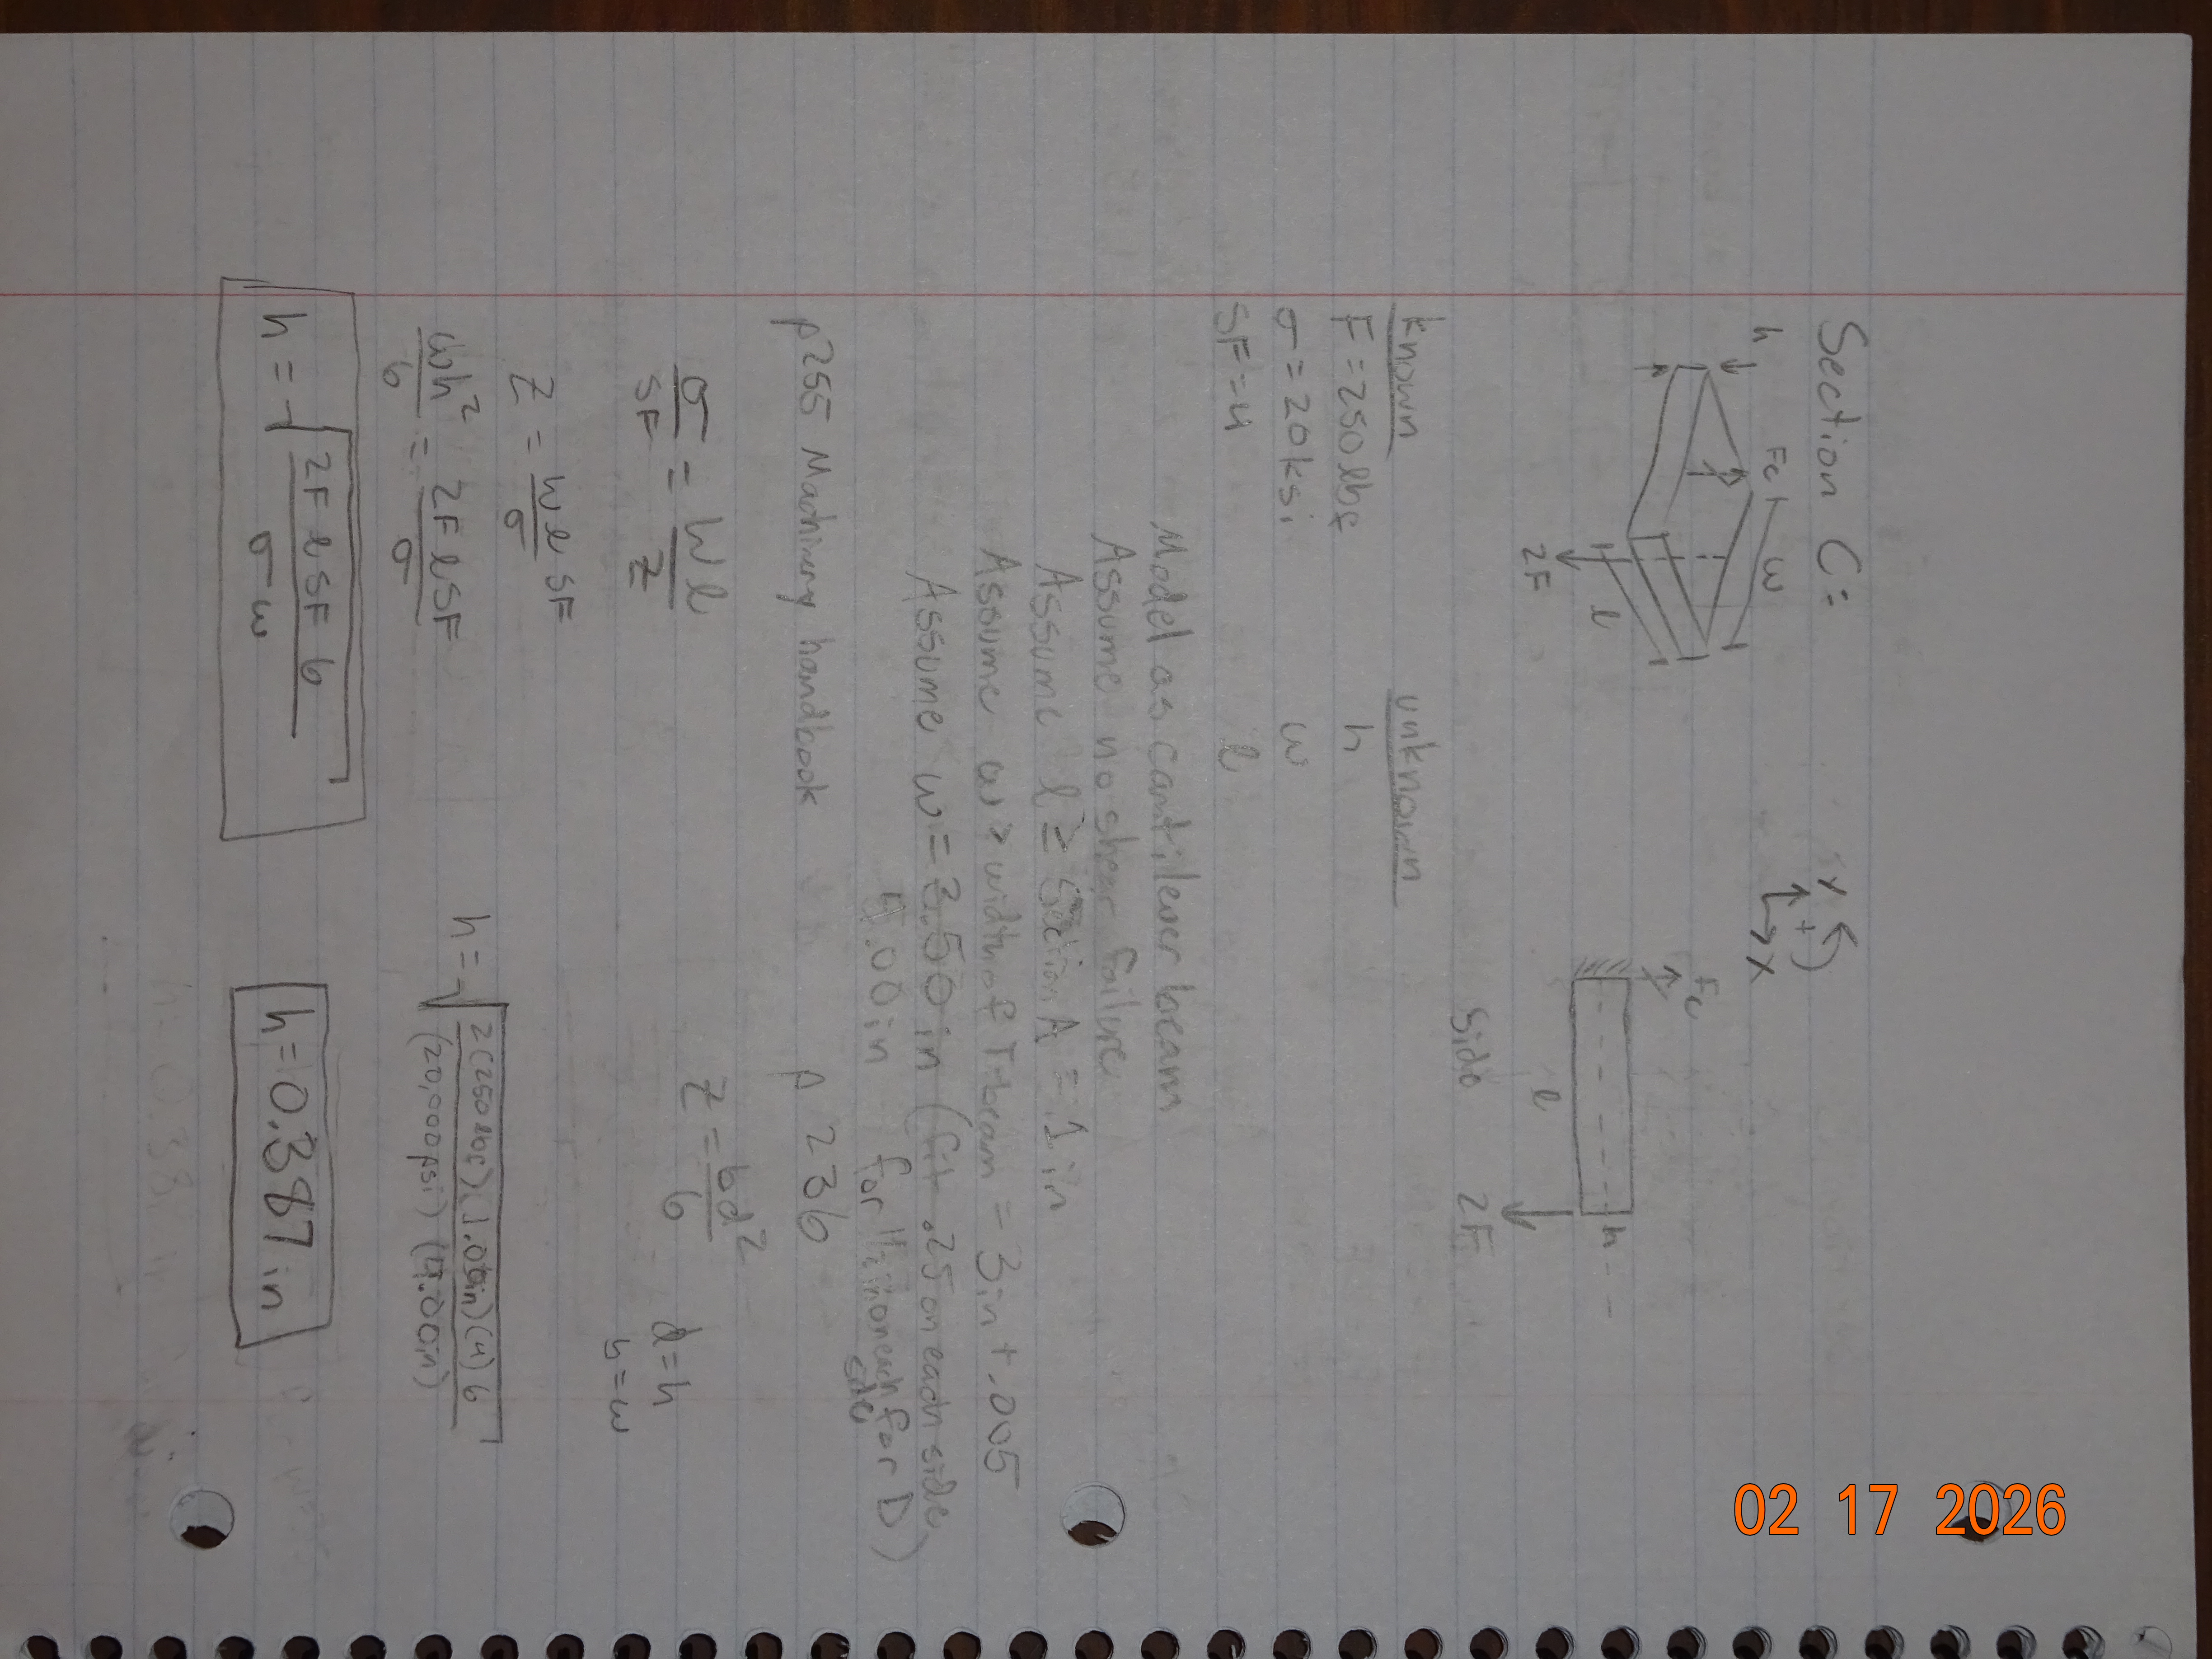 Section C:
y
+
x
h
Fc
w
l
2F
Fc
h
l
2F
Side
known
unknown
F = 250 lbf
h
σ = 20 ksi
w
SF = 4
l
Model as cantilever beam
Assume no shear failure
Assume l ≥ Section A = 1 in
Assume w > width of T-beam = 3 in + .005
Assume w = 3.50 in (fit .25 on each side,
4.00 in for 1/2 in on each side for D)
p 255 Machinery handbook
p 236
σ/SF = Wl/Z
Z = bd²/6
d = h
b = w
Z = Wl/σ SF
wh²/6 = 2F l SF/σ
h = √(2(250 lbf)(1.00in)(4)6/(20,000 psi)(4.00in))
h = √(2F l SF 6/σ w)
h = 0.387 in
02 17 2026